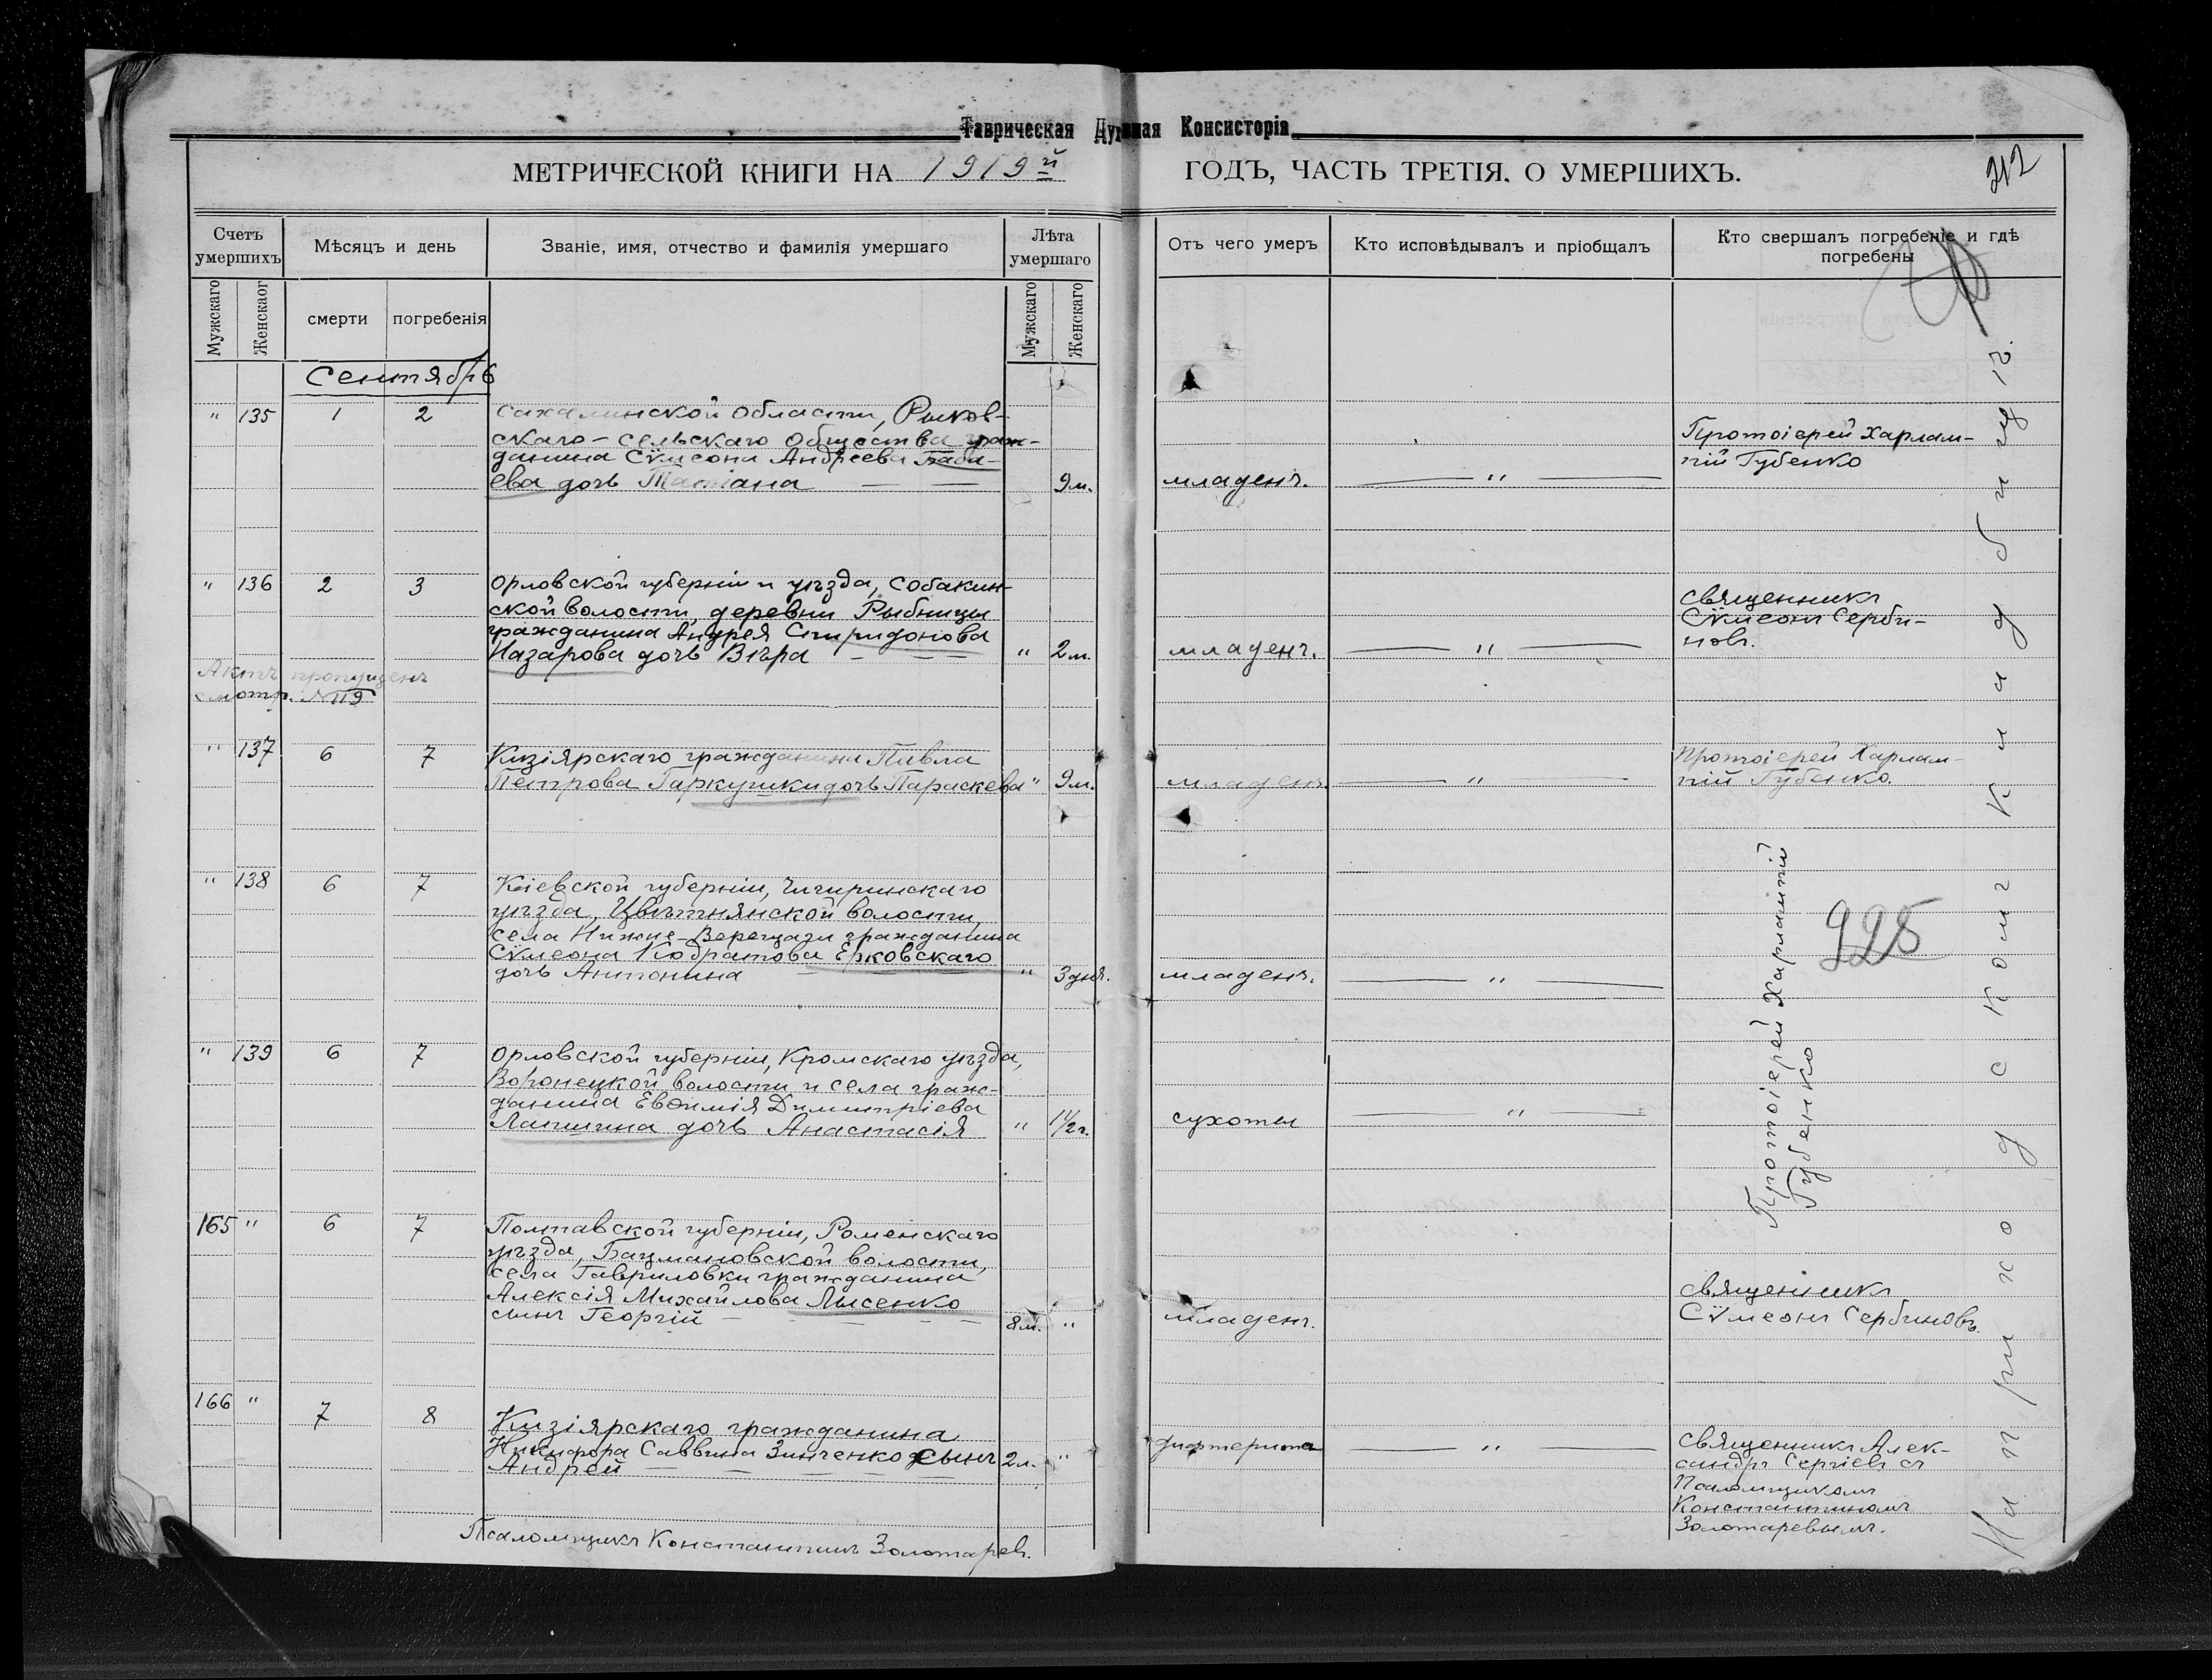 Таврическая Духовная Консисторія
МЕТРИЧЕСКОЙ КНИГИ НА 1919й ГОДЪ, ЧАСТЬ ТРЕТІЯ. О УМЕРШИХЪ.
212
Счетъ умершихъ
Мѣсяцъ и день
Званіе, имя, отчество и фамилія умершаго
Лѣта умершаго
Отъ чего умеръ
Кто исповѣдывалъ и пріобщалъ
Кто свершалъ погребеніе и гдѣ
погребены
Мужскаго
Женскаог
смерти
погребенія
Мужскаго
Женскаго
Сентябрь
" 135 1 2 Сахалинской области, Рыков-
скаго - сельскаго общества граж-
данина Сѵмеона Андреева Баба-
ева дочь Татіана — — 9 м. младенч. — " —
Протоіерей Харлам-
пій Губенко
" 136 2 3 Орловской губерніи и уѣзда, Собакин-
ской волости, деревни Рыбницы
гражданина Андрея Спиридонова
Назарова дочь Вѣра — — " 2 м. младенч. — " —
Священникъ
Сѵмеонъ Серби-
новъ.
Актъ пропущенъ
смотр. № 119
" 137 6 7 Кизіярскаго гражданина Павла
Петрова Гаркушки дочь Параскева " 9 м. младенч. — " —
Протоіерей Харлам-
пій Губенко.
" 138 6 7 Кіевской губерніи, Чигиринскаго
уѣзда, Цвѣтнянской волости,
села Нижне-Верещаги гражданина
Сѵмеона Кодратова Ерковскаго
дочь Антонина " 3 дня. младенч. — " —
Протоіерей Харлампій
Губенко
928
" 139 6 7 Орловской губерніи, Кромскаго уѣзда,
Воронецкой волости и села граж-
данина Евѳимія Димитріева
Лапшина дочь Анастасія " 1 1/2 г. сухотки — " —
165 " 6 7 Полтавской губерніи, Роменскаго
уѣзда, Бацмановской волости,
села Гавриловки гражданина
Алексія Михайлова Лысенко
сынъ Георгій — — — — 8 м. " младенч.
Священникъ
Сѵмеонъ Сербиновъ.
166 " 7 8 Кизіярскаго гражданина
Никифора Саввина Зинченко сынъ 2 л. " дифтерита — " —
Андрей — — — —
Священникъ Алек-
сандръ Сергіевъ съ
Псаломщикомъ
Константиномъ
Золотаревымъ.
Псаломщикъ Константинъ Золотаревъ.
На приходскомъ кладбищѣ.